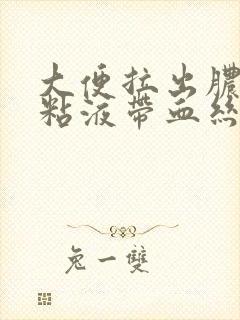 大便拉出膿
粘液帶血絲
兔一雙